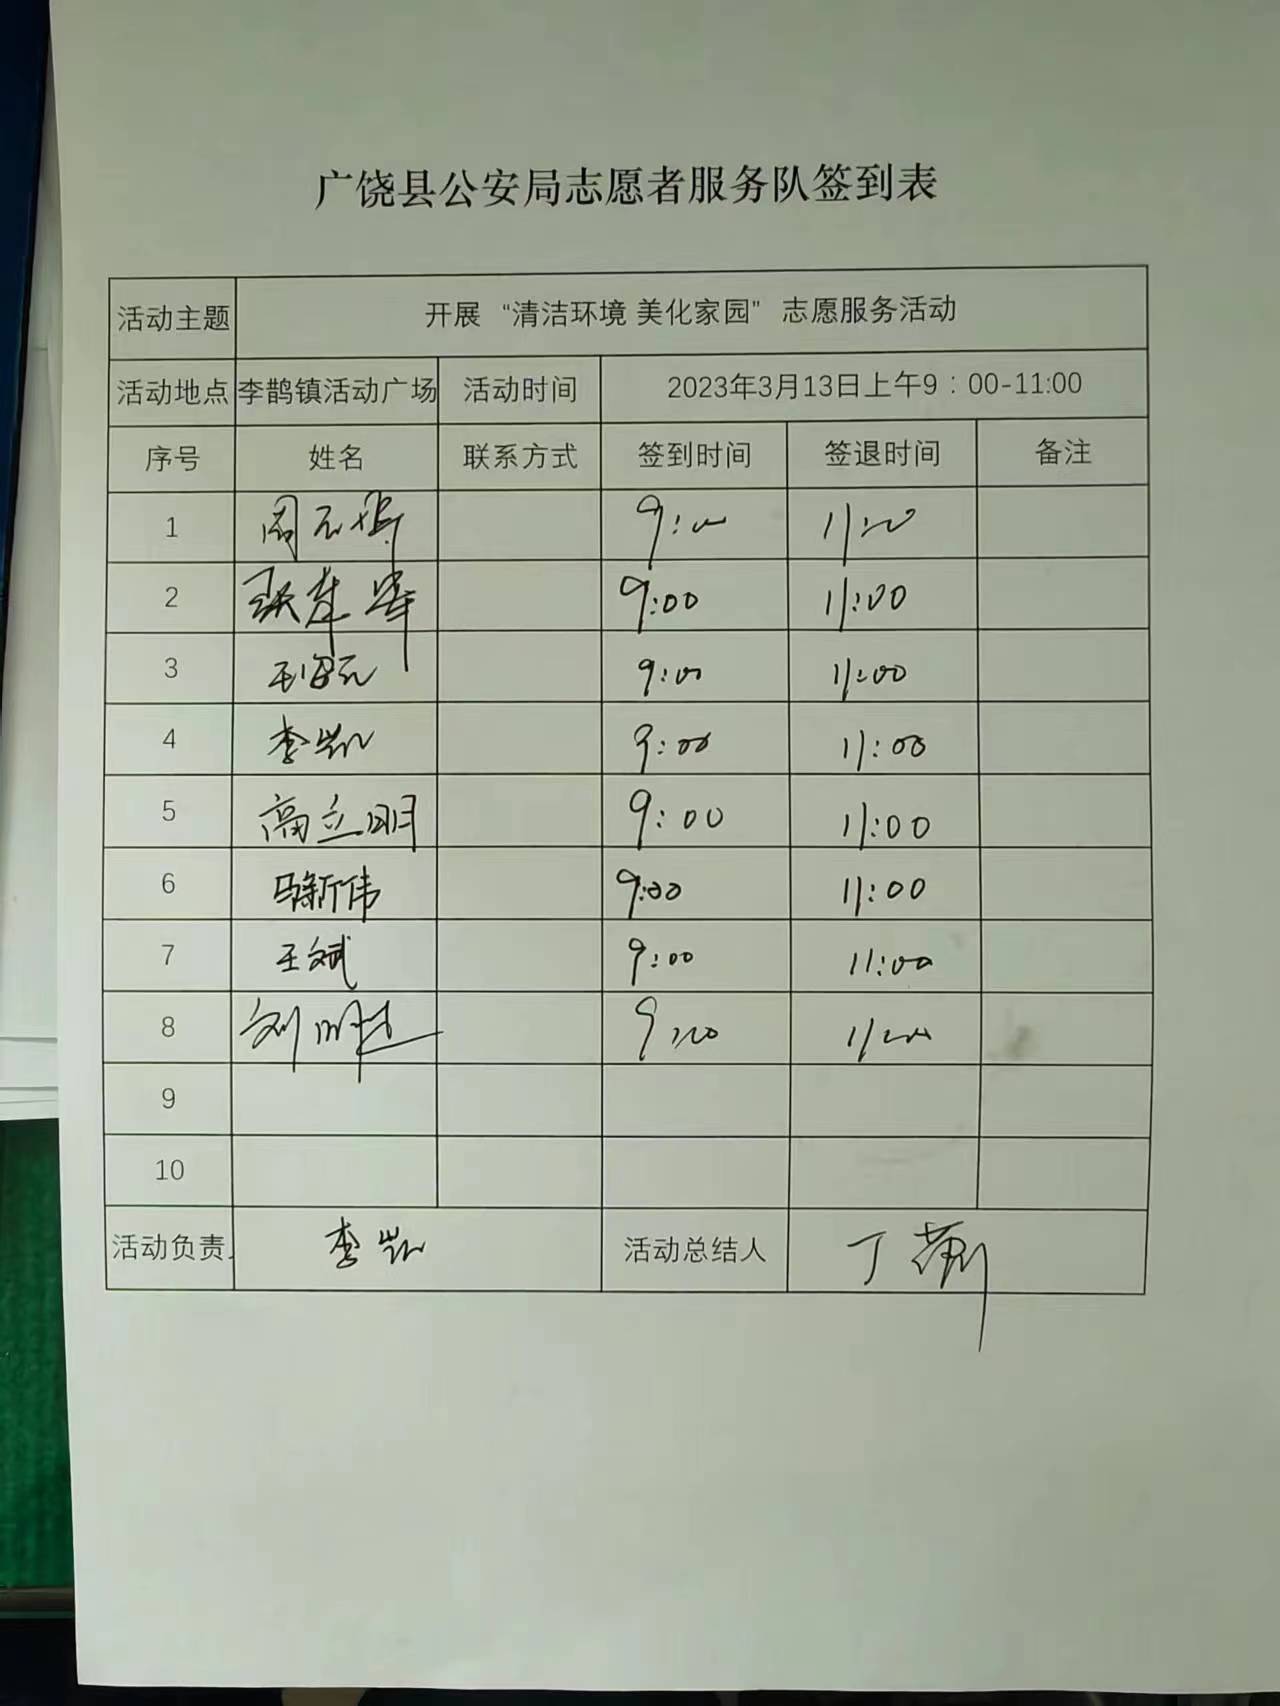 广饶县公安局志愿者服务队签到表
活动主题 开展 “清洁环境 美化家园” 志愿服务活动
活动地点 李鹊镇活动广场 活动时间 2023年3月13日上午9：00-11:00
序号 姓名 联系方式 签到时间 签退时间 备注
1 9:00 11:00
2 9:00 11:00
3 9:00 11:00
4 李凯 9:00 11:00
5 高立明 9:00 11:00
6 马新伟 9:00 11:00
7 王斌 9:00 11:00
8 刘明 9:00 11:00
9
10
活动负责 李凯 活动总结人 丁